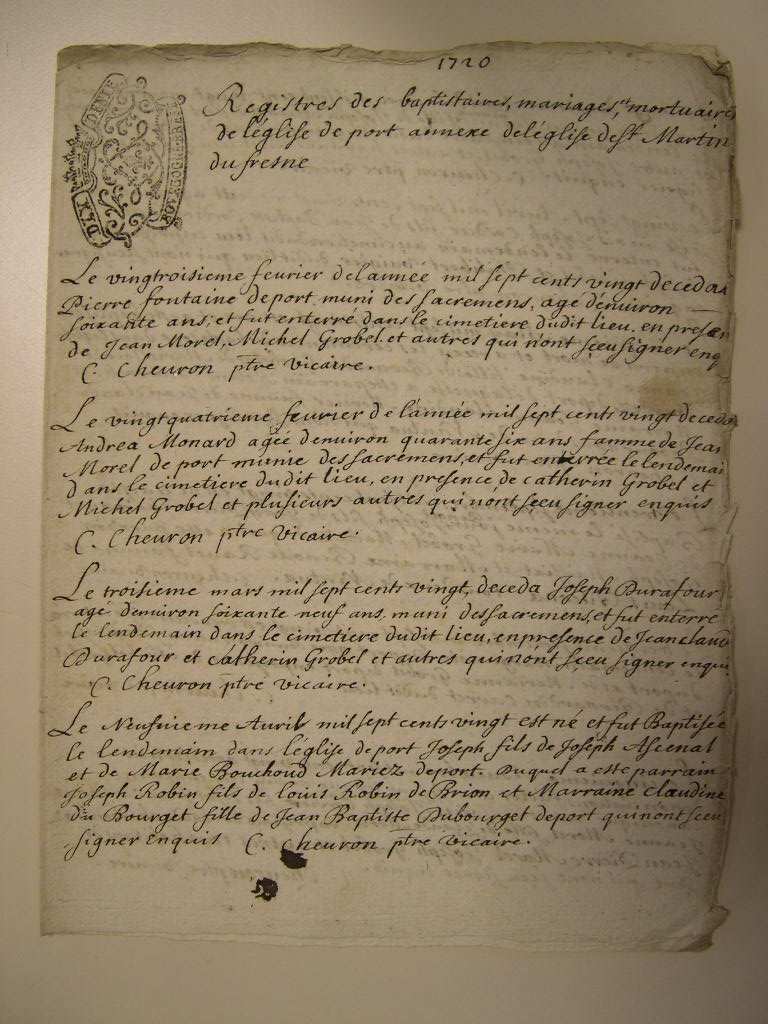 1720
Registres des baptistaires, mariages, et mortuaires
de léglise de port annexe de léglise de St Martin
du fresne
Le vingtroisieme feurier de lannée mil sept cents vingt deceda
Pierre fontaine de port, muni des sacremens, age denuiron
soixante ans, et fut enterré dans le cimetiere dudit lieu, en presen
de Jean Morel, Michel Grobel et autres qui nont sceu signer enq
C. Cheuron ptre vicaire.
Le vingtquatrieme feurier de l'année mil sept cents vingt deceda
Andrea Monard agée denuiron quarante six ans famme de Jean
Morel de port munie des sacremens, et fut enterrée le lendemai
dans le cimetiere dudit lieu, en presence de catherin Grobel et
Michel Grobel et plusieurs autres qui nont sceu signer enquis
C. Cheuron ptre vicaire.
Le troisieme mars mil sept cents vingt, deceda Joseph Durafour
age denuiron soixante neuf ans muni des sacremens, et fut enterré
le lendemain dans le cimetiere dudit lieu, en presence de Jean claud
Durafour et catherin Grobel et autres qui nont sceu signer enqui
C. Cheuron ptre vicaire.
Le Neufuieme Auril mil sept cents vingt est né et fut Baptisée
le lendemain dans léglise de port Joseph fils de Joseph
et de Marie Bouchoud Mariez deport. Duquel a este parrain
Joseph Robin fils de Louis Robin de Brion et Marraine claudine
du Bourget fille de Jean Baptiste Dubourget deport qui nont sceu
signer Enquis C. Cheuron ptre vicaire.